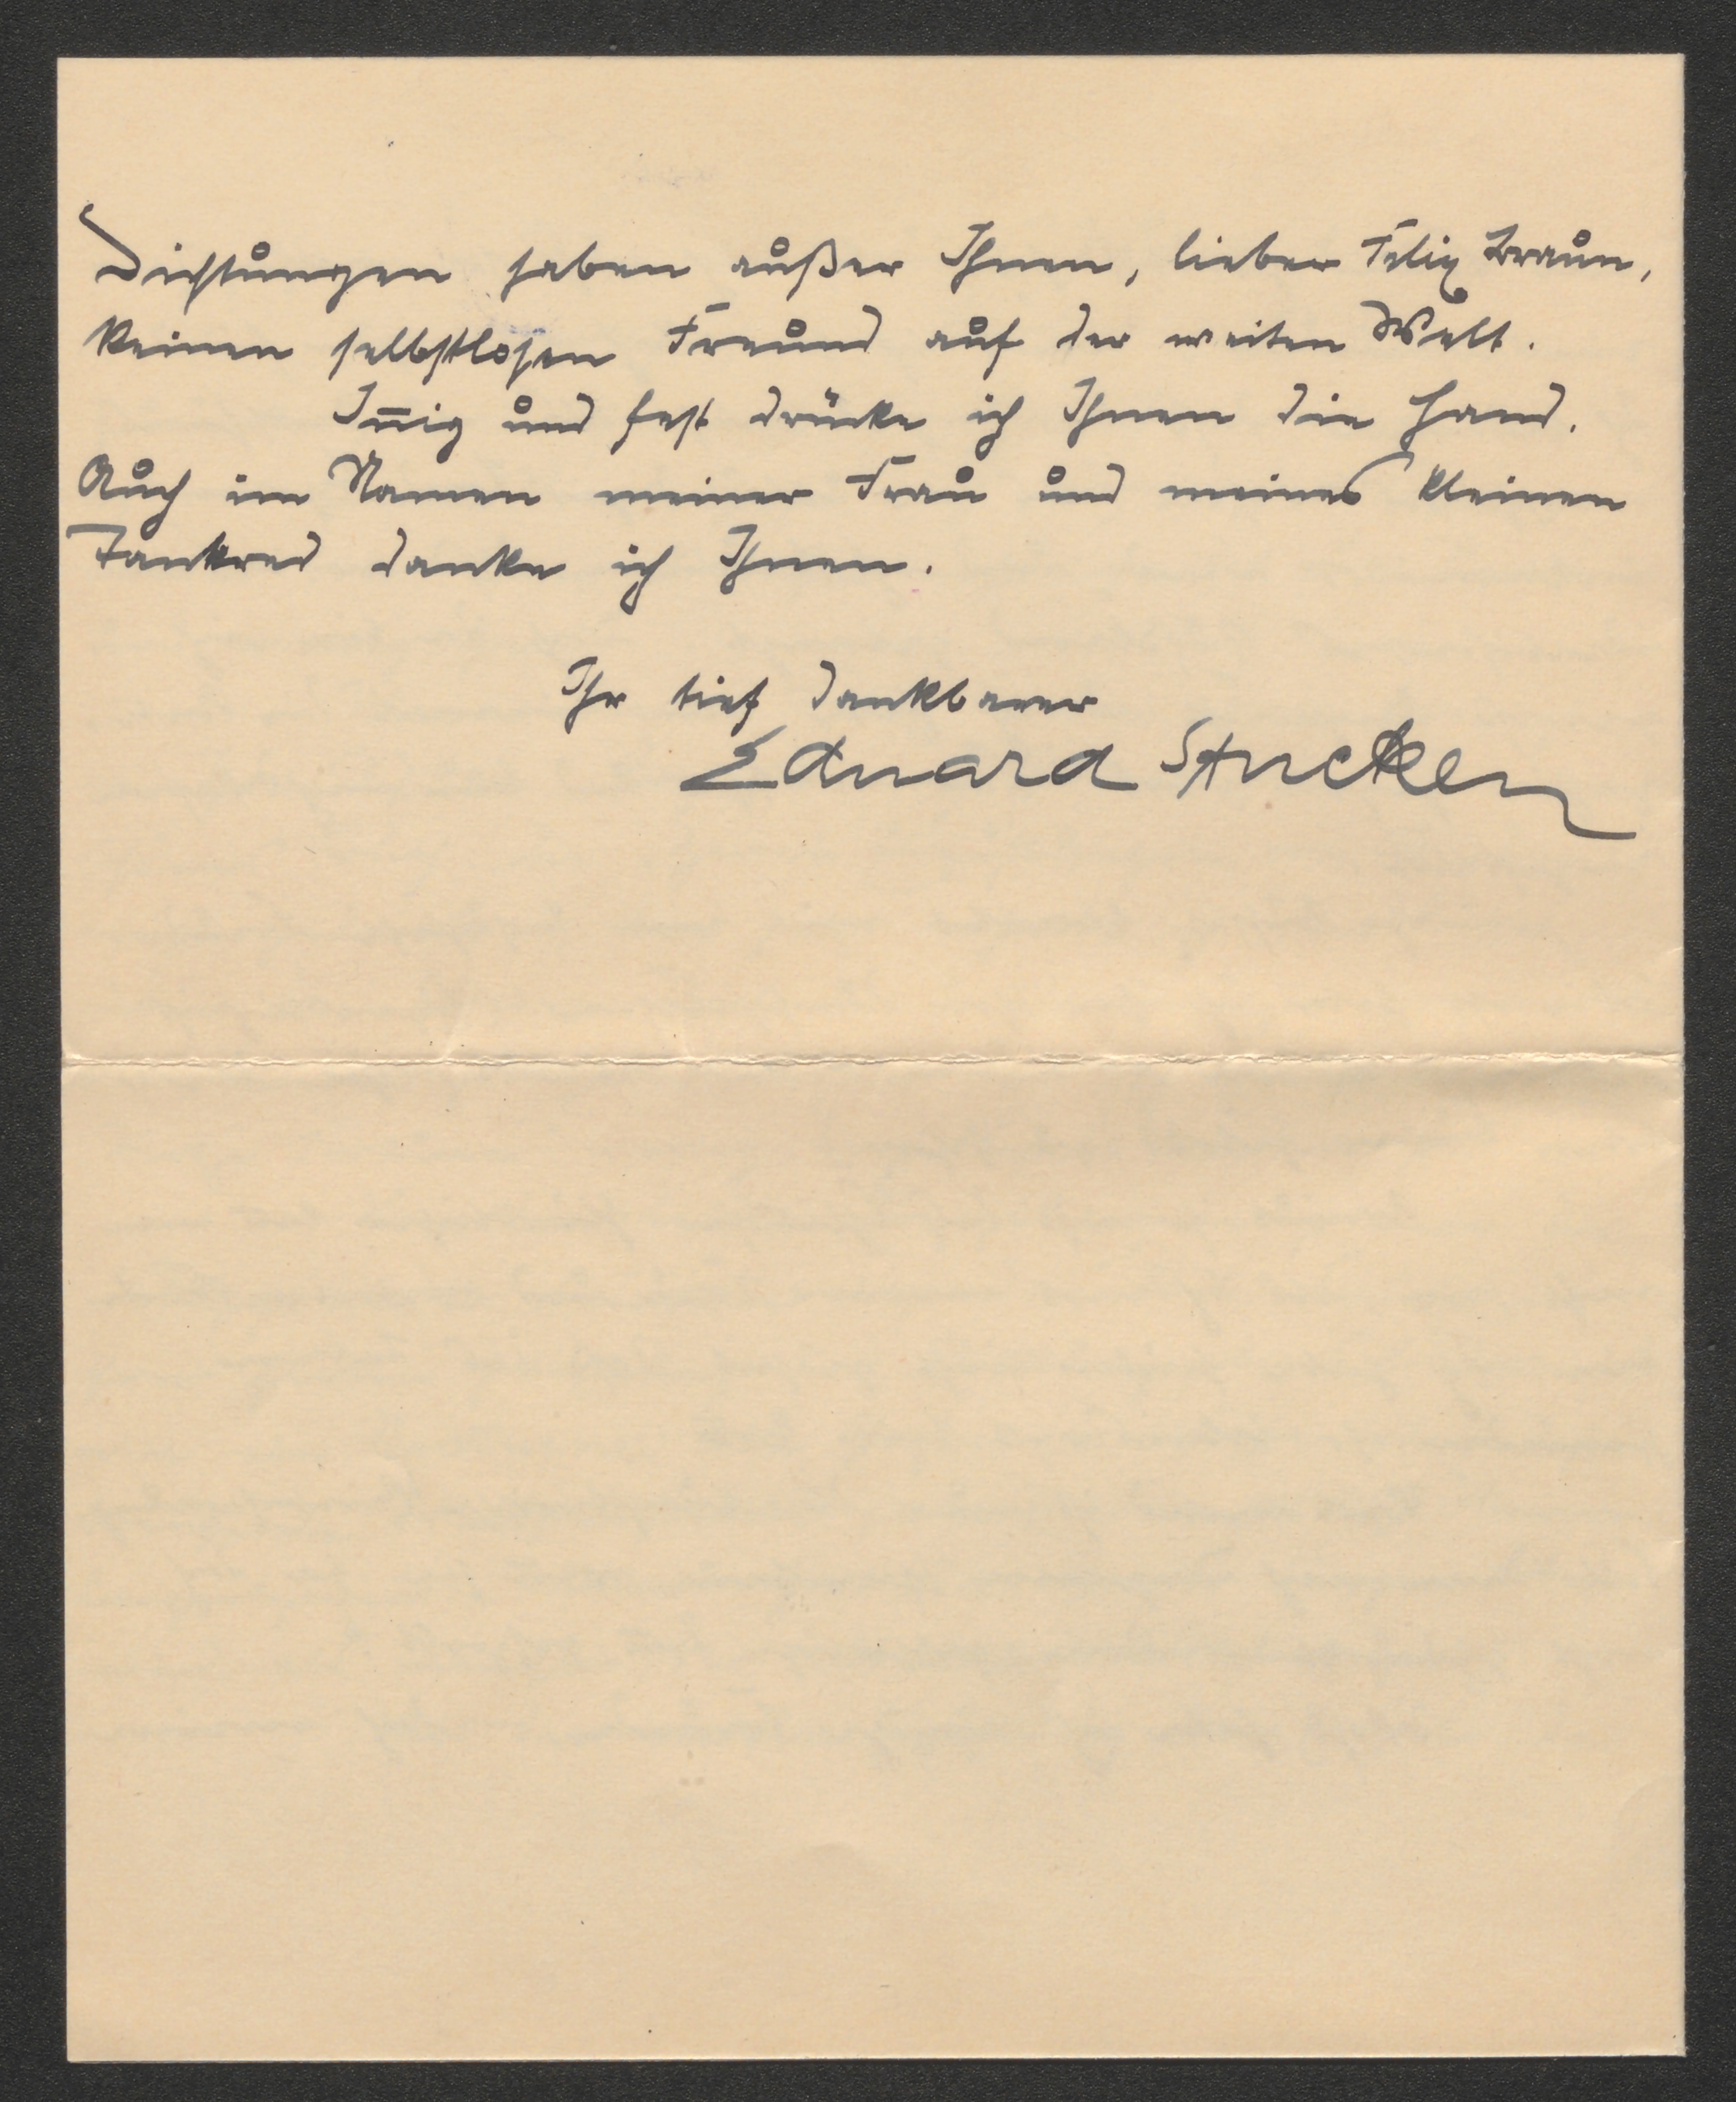 Dichtungen haben außer Ihnen, lieber Felix Braun,
keinen selbstlosen Freund auf der weiten Welt.
In̅ig und fest drücke ich Ihnen die Hand.
Auch im Namen meiner Frau und meines kleinen
Tankred danke ich Ihnen.
Ihr tief dankbarer
Eduard Stucken